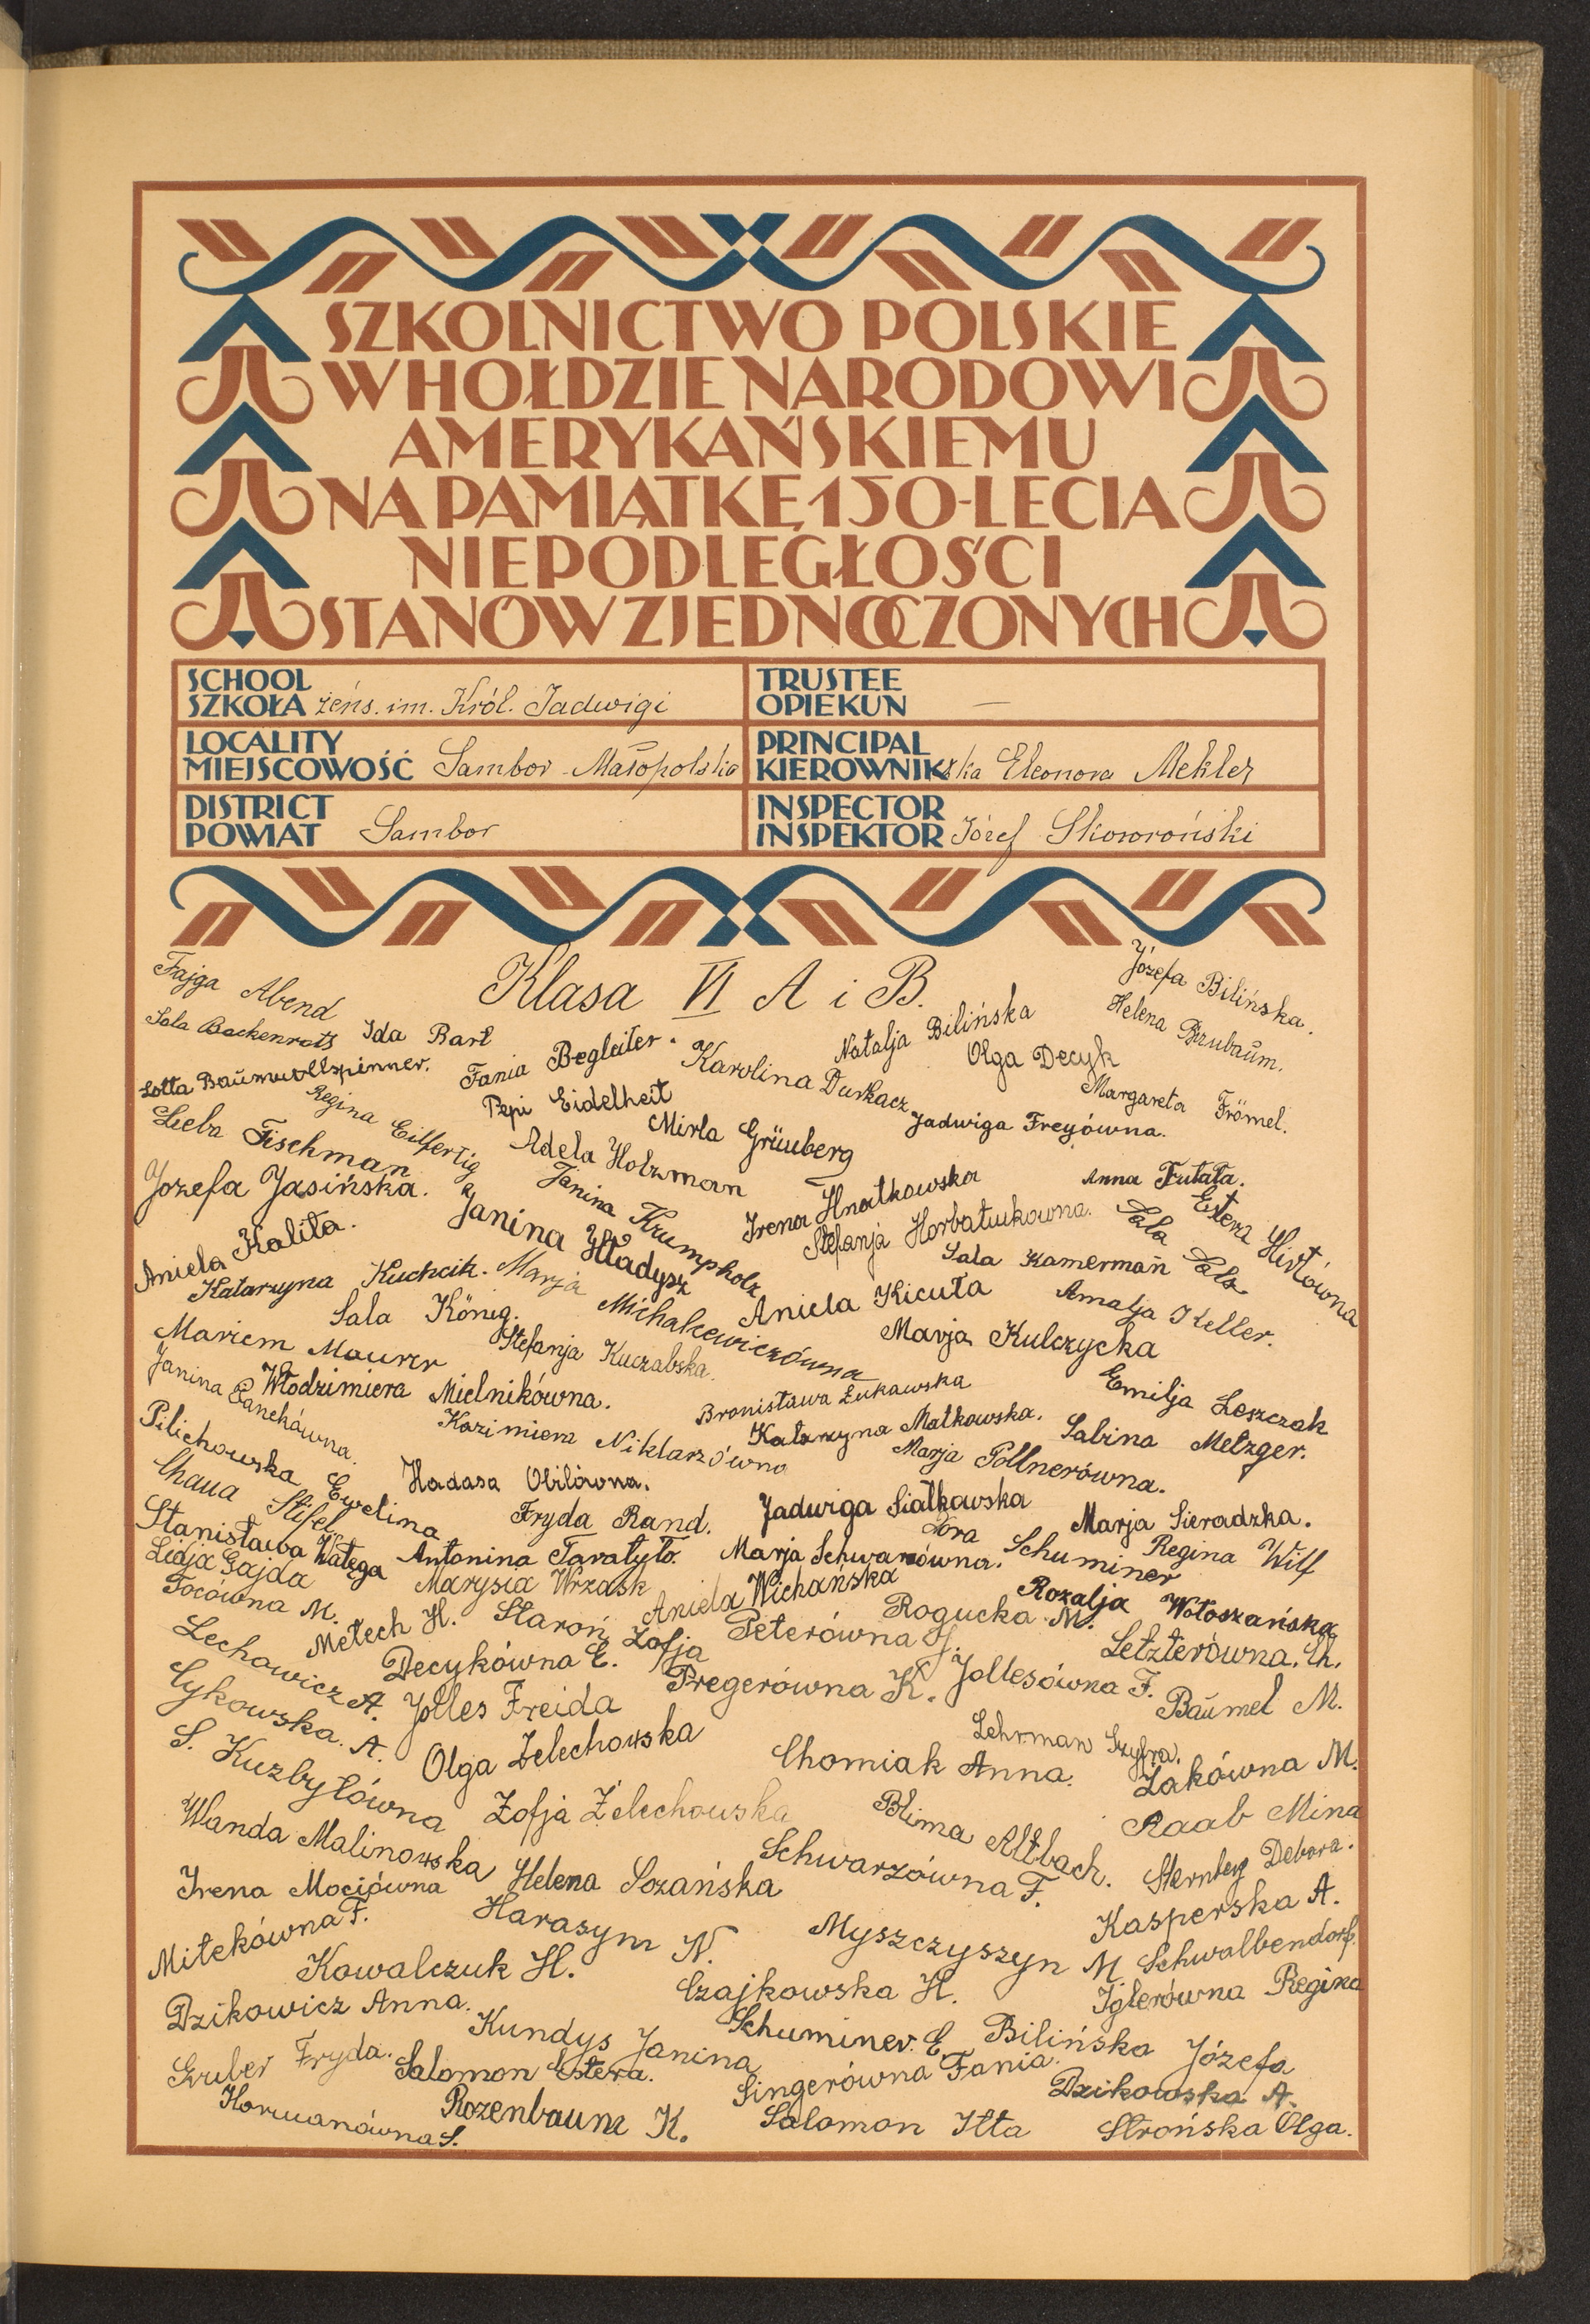 SZKOLNICTWO POLSKIE
W HOŁDZIE NARODOWI
AMERYKAŃSKIEMU
NA PAMIĄTKĘ 150-LECIA
NIEPODLEGŁOŚCI
STANÓW ZJEDNOCZONYCH
SCHOOL
SZKOŁA żeńs. im. Król. Jadwigi
TRUSTEE
OPIEKUN —
LOCALITY
MIEJSCOWOŚĆ Sambor Małopolska
PRINCIPAL
KIEROWNIKzka Eleonora Mekler
DISTRICT
POWIAT Sambor
INSPECTOR
INSPEKTOR Józef Skowroński
Klasa VI A i B.
Fajga Abend
Józefa Bilińska.
Sala Backenroth
Ida Bart
Natalja Bilińska
Helena Birnbaum.
Lotta Baumwollspinner.
Fania Begleiter.
Karolina Durkacz
Olga Decyk
Regina Eilfertig
Pepi Eidelheit
Margareta Frömel.
Lieba Fischman
Adela Holzman
Mirla Grünberg
Jadwiga Freyówna.
Józefa Jasińska.
Janina Krumpholz
Irena Hnatkowska
Anna Futała.
Aniela Kalita.
Janina Władysz
Stefanja Horbatiukowna.
Estera Hirtówna
Sala Sals
Katarzyna Kuchcik.
Marja Michalcewiczówna
Sala Kamerman
Sala König.
Aniela Kicuła
Amalja Keller.
Mariem Maurer
Stefanja Kuczabska.
Marja Kulczycka
Janina Panekówna.
Włodzimiera Mielnikówna.
Bronisława Łukawska
Emilja Leszczak
Pilichowska Ewelina
Kazimiera Niklarzówna
Katarzyna Małkowska.
Sabina Metzger.
Chana Stifel
Hadasa Obilówna.
Marja Pollnerówna.
Stanisława Watęga
Fryda Rand.
Jadwiga Siałkowska
Marja Sieradzka.
Lidja Gajda
Antonina Taratyło.
Marja Schwarzówna.
Dora Schuminer
Regina Wilf
Tocówna M.
Marysia Wrzask
Aniela Wichańska
Rozalja Wołoszańska
Metech H.
Staroń Zofja
Peterówna J.
Rogucka M.
Lechowicz A.
Decykówna E.
Letzterówna. Ch.
Cykowska. A.
Jolles Freida
Pregerówna K.
Jollesówna F.
Baumel M.
S. Kuzbyłówna
Olga Zelechowska
Chomiak Anna.
Lehrman Szyfra.
Żakówna M.
Wanda Malinowska
Zofja Żelechowska
Blima Altbach.
Raab Mina
Irena Mociówna
Helena Sozańska
Schwarzówna F.
Sternberg Debora.
Mitekówna F.
Harasym N.
Myszczyszyn M
Kasperska A.
Kowalczuk H.
Schwalbendorf.
Dzikowicz Anna.
Czajkowska H.
Iglerówna Regina
Kundys Janina
Schuminer. E.
Bilińska Józefa
Gruber Fryda.
Salomon Estera.
Singerówna Fania.
Dzikowska A.
Hormanówna S.
Rozenbaum K.
Salomon Itta
Strońska Olga.